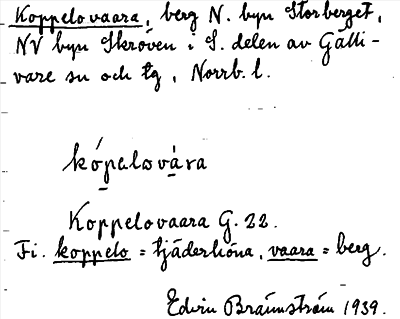 Koppelovaara, berg N. byn Storberget,
NV byn Skröven i S. delen av Gälli-
vare sn och tg, Norrb. l.
kópalovàra
Koppelovaara G. 22.
Fi. koppelo = tjäderhöna, vaara = berg.
Edvin Brännström 1939.